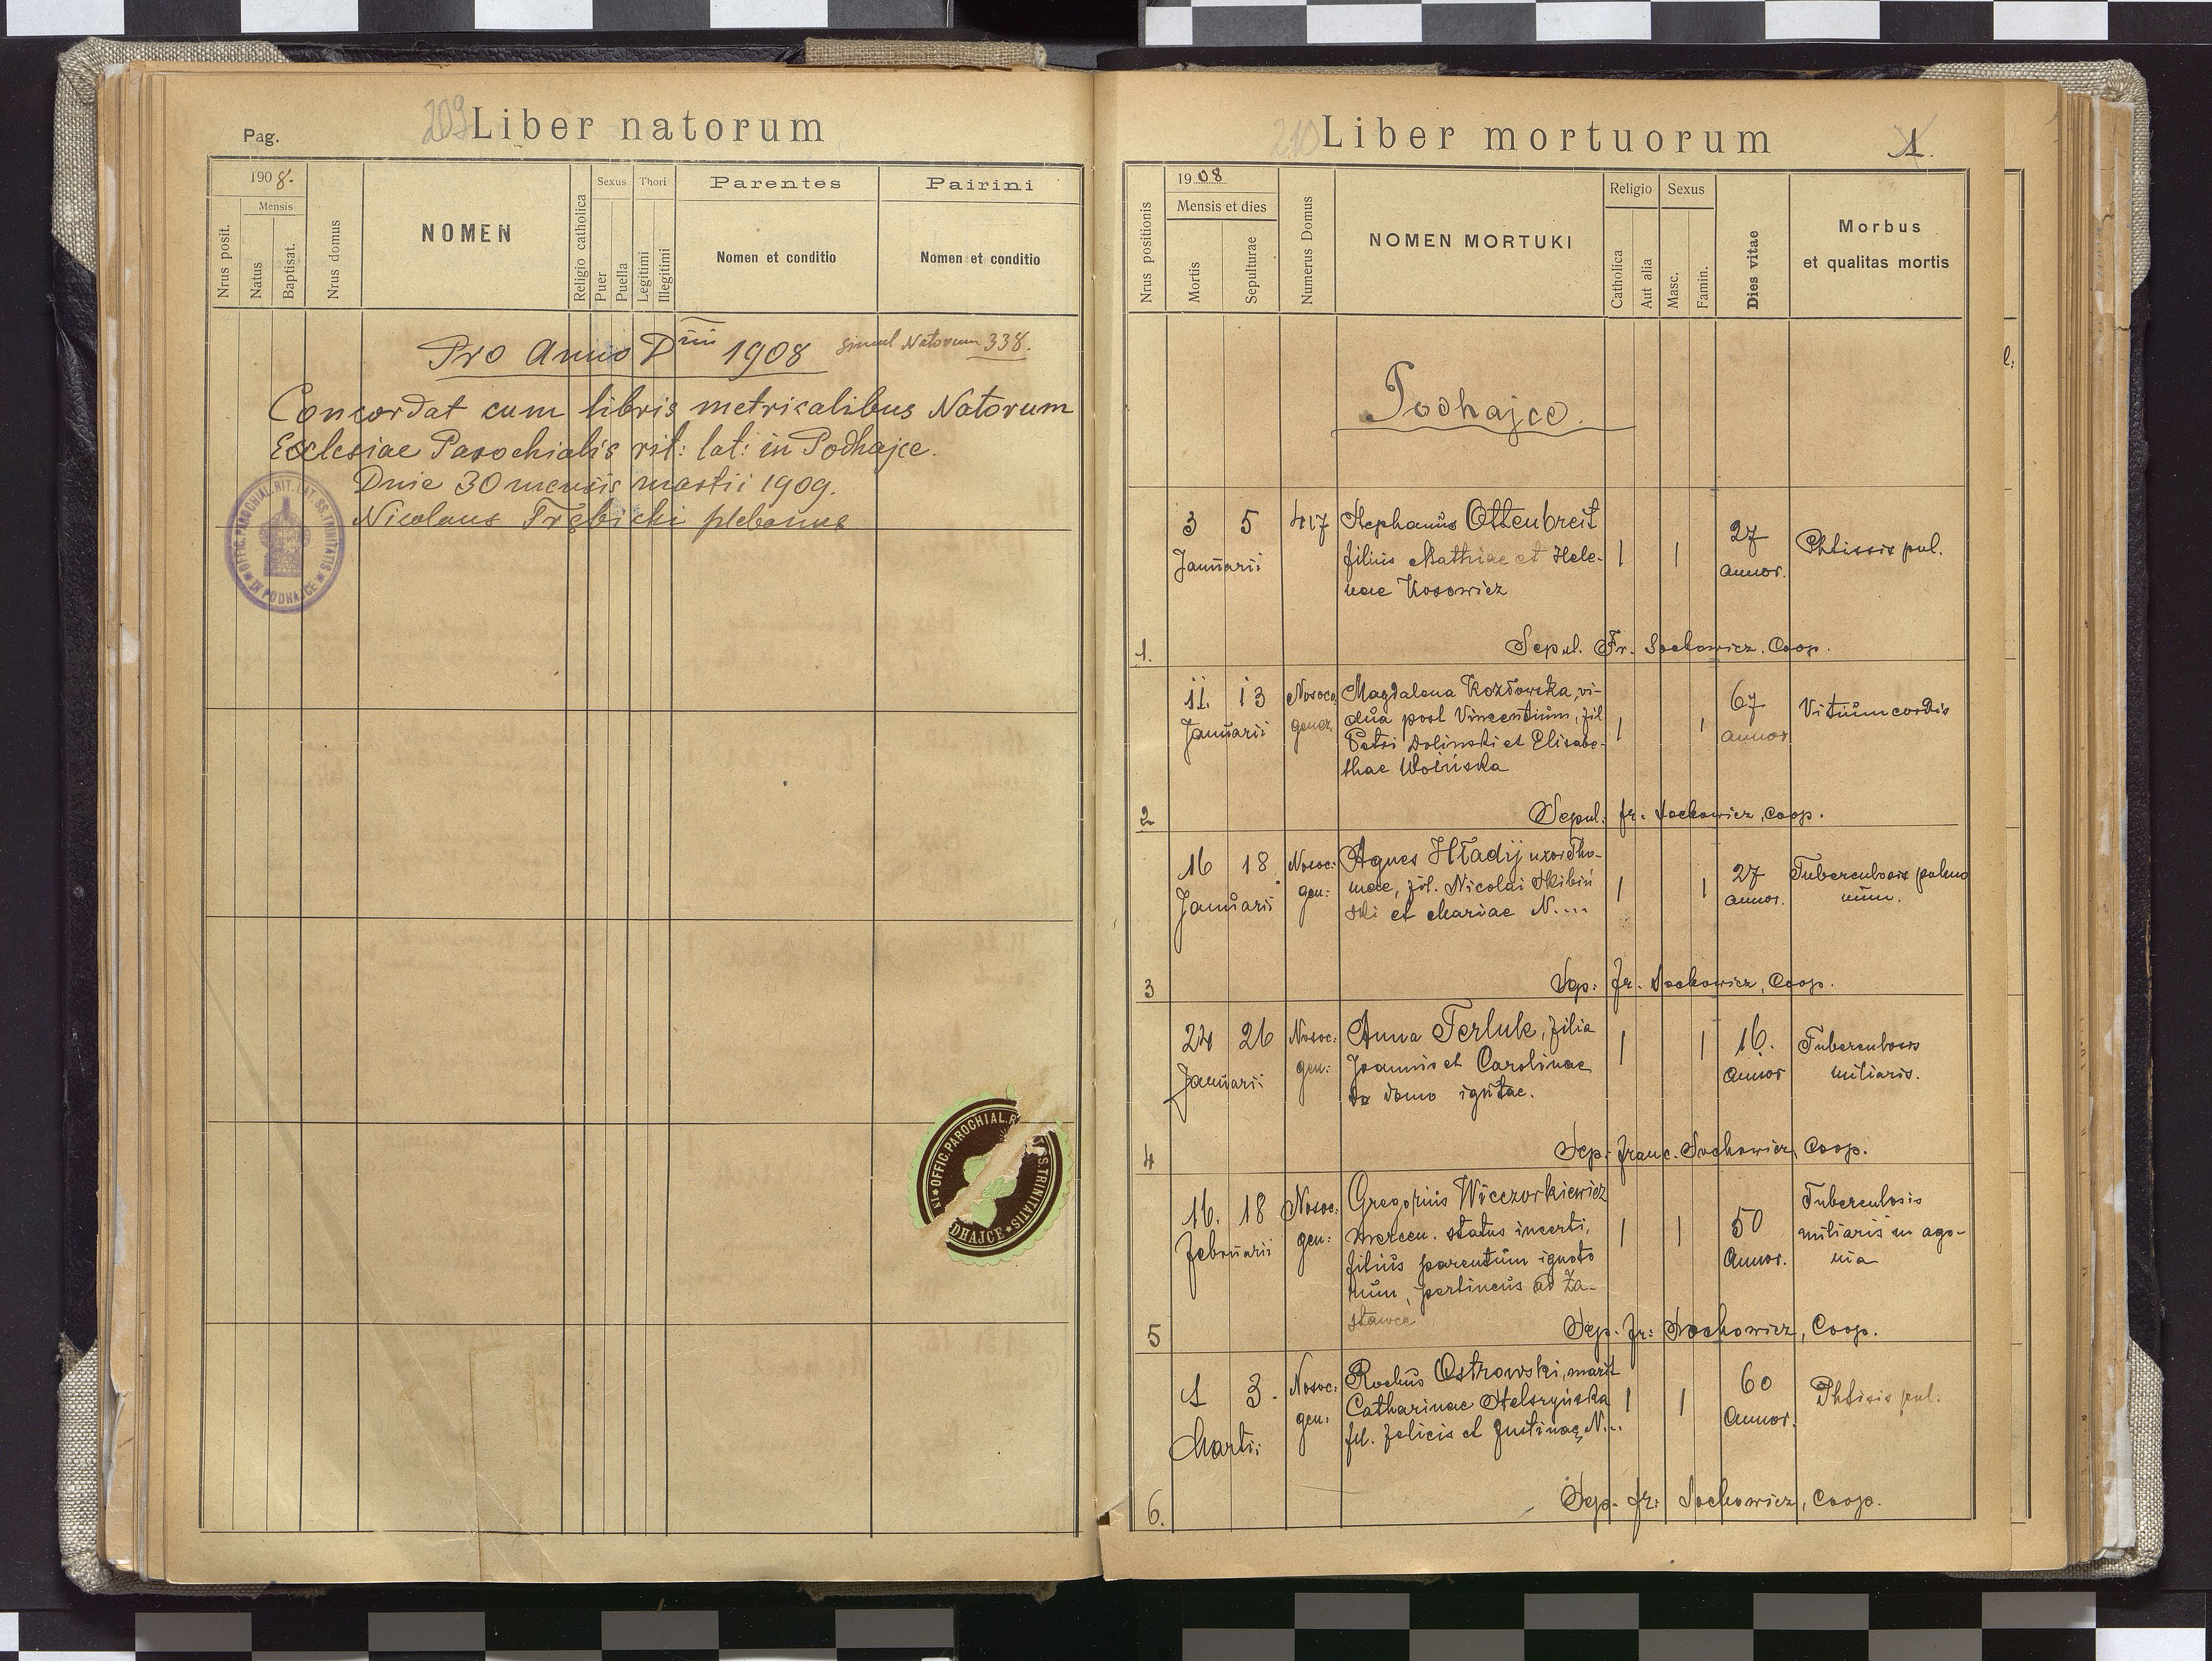 209
Pag.
Liber natorum
1908.
Mensis
Nrus posit.
Natus
Baptisat.
Nrus domus
NOMEN
Religio catholica
Sexus
Puer
Puella
Thori
Legitimi
Illegitimi
Parentes
Nomen et conditio
Pairini
Nomen et conditio
Pro Anno Dnii 1908 simul Natorum 338.
Concordat cum libris metricalibus Natorum
Ecclesiae Parochialis rit: lat: in Podhajce.
Dnie 30 mensis martii 1909.
Nicolaus Trębicki plebanus
OFFIC. PAROCHIAL. RIT. LAT. SS. TRINITATIS
IN PODHAJCE
OFFIC. PAROCHIAL. R
S. TRINITATIS
IN
DHAJCE
210
Liber mortuorum
1.
Nrus positionis
1908
Mensis et dies
Mortis
Sepulturae
Numerus Domus
NOMEN MORTUKI
Religio
Catholica
Aut alia
Sexus
Masc.
Famin.
Dies vitae
Morbus
et qualitas mortis
Podhajce.
1.
3 5
Januarii
417
Stephanus Ottenbreit
filius Mathiae et Hele-
nae Kosowicz
27
annor.
Phtissis pul.
Sepul. Fr. Sochowicz, Coop.
2
11. 13
Januarii
Nosoc.
gener.
Magdalena Kozłowska, vi-
dua post Vincentium, fil
Petri Dolinski et Elisabe-
thae
67
annor
Vitium cordis
Sepul: fr. Sochowicz, Coop.
3
16 18.
Januarii
Nosoc:
gen:
Agnes Hładij uxor Tho-
mae, fil. Nicolai Skibiń
ski et Mariae N....
27
annor.
Tuberculosis pulmo
num.
Sep: Fr. Sochowicz, Coop.
4
24 26
Januarii
Nosoc:
gen:
Anna Terluk, filia
Joannis et Carolinae
de domo ignotae.
16.
Annor
Tuberculosis
miliaris.
Sep. Franc. Sochowicz, Coop.
5
16. 18
Februarii
Nosoc:
gen:
Gregorius Wieczorkiewicz
mercen. status incerti,
filius parentum ignoto
rum, pertinens ad Za-
stawce
50
Annor.
Tuberculosis
miliaris in ago-
nia
Sep. Fr: Sochowicz, Coop.
6.
1 3.
Marti:
Nosoc:
gen:
Rochus Ostrowski, marit
Catharinae
fil. Felicis et Justinae N...
60
Annor.
Phtisis pul.
Sep. fr. Sochowicz, Coop.